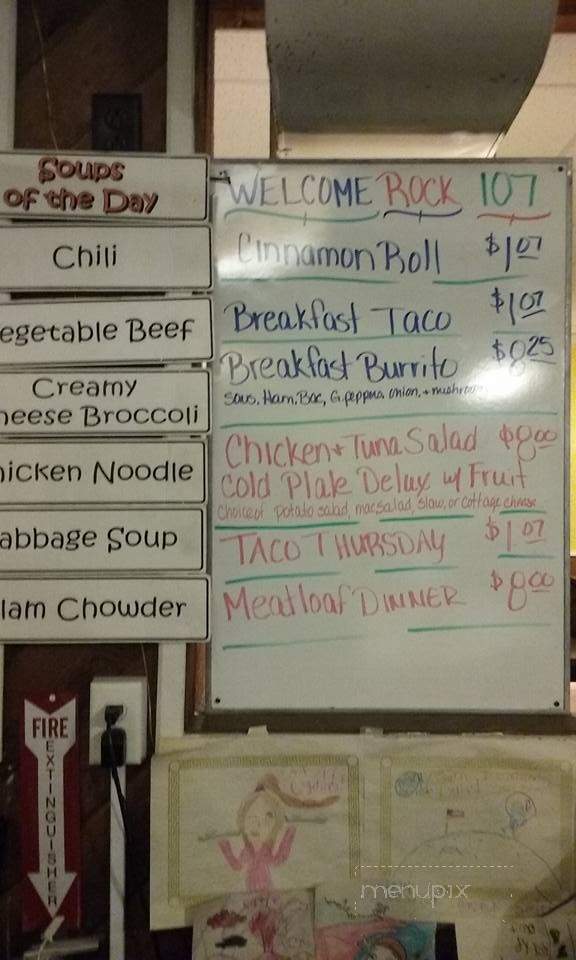 Soups
of the Day
Chili
egetable Beef
Creamy
heese Broccoli
hicken Noodle
abbage Soup
lam Chowder
WELCOME ROCK 107
Cinnamon Roll $1.07
Breakfast Taco $1.07
Breakfast Burrito $8.25
Saus, Ham, Bac, G. peppers, onion, + mushroom
Chicken + Tuna Salad $8.00
Cold Plate Delux w/ Fruit
Choice of potato salad, mac salad, slaw, or cottage cheese
TACO THURSDAY $1.07
Meatloaf DINNER $8.00
FIRE
EXTINGUISHER
menupix